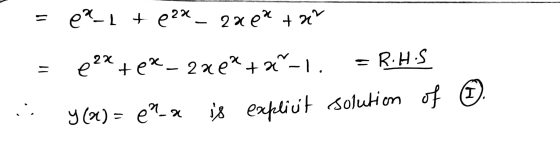 = eˣ-1 + e²ˣ - 2xeˣ + x²
= e²ˣ + eˣ - 2xeˣ + x² - 1. = R.H.S
∴ y(x) = eˣ-x is explicit solution of Ⓘ.